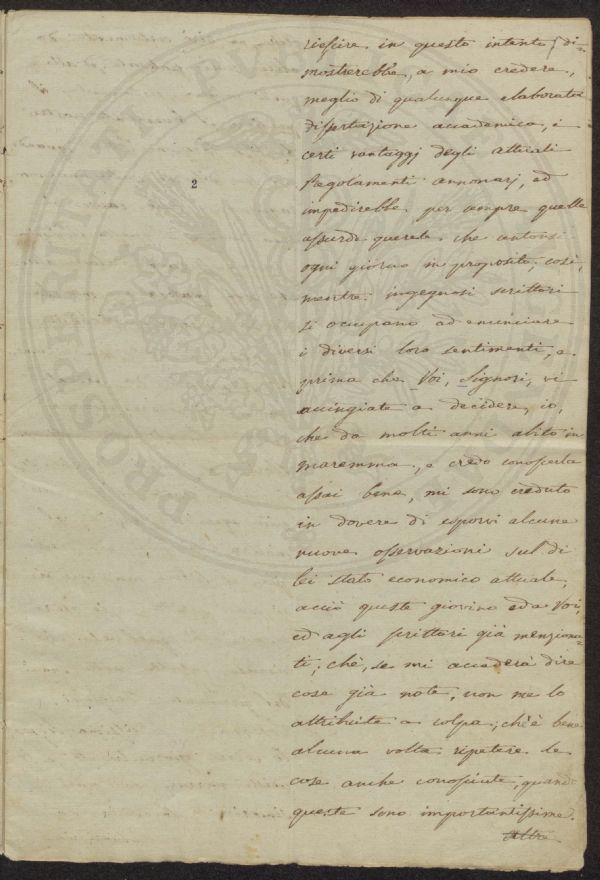 2
riescire in questo intento, di-
mostrerebbe, a mio credere,
meglio di qualunque elaborata
dissertazione accademica, i
certi vantaggj degli attuali
Regolamenti annonarj, ed
impedirebbe per sempre quelle
assurde querele che
ogni giorno in proposito; così,
mentre ingegnosi scrittori
si occupano ad enunciare
i diversi loro sentimenti, e
prima che Voi, Signori, vi
accingiate a decidere, io,
che da molti anni abito in
maremma, e credo conoscerla
assai bene, mi sono creduto
in dovere di esporvi alcune
nuove osservazioni sul di
lei stato economico attuale,
acciò queste giovino ed a Voi,
ed agli scrittori già menziona-
ti; chè, se mi accaderà dire
cose già note, non me lo
attribuite a colpa; ch'è bene
alcuna volta ripetere le
cose anche conosciute, quando
queste sono importantissime.
Altre
PROSPERITATI PVBLICAE